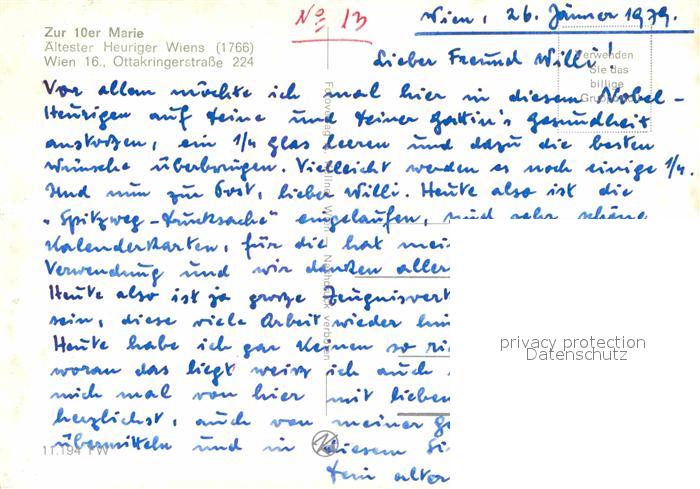 No 13
Wien, 26. Jänner 1979.
Zur 10er Marie
Ältester Heuriger Wiens (1766)
Wien 16., Ottakringerstraße 224
Lieber Freund Willi!
Verwenden
Sie das
billige
Vor allem möchte ich mal hier in diesem Nobel-
Heurigen auf Deine und Deiner Gattin's Gesundheit
anstoßen, ein 1/4 Glas leeren und dazu die besten
Wünsche überbringen. Vielleicht werden es noch einige 1/4.
Und nun zur Post, lieber Willi. Heute also ist die
"Spitzweg-Drucksache" eingelaufen, sehr schöne
Kalenderkarten, für die hat mei
Verwendung und wir danken aller
Heute also ist ja große Zeugnisvert
sein, diese viele Arbeit wieder
Heute habe ich gar keinen so ri
woran das liegt weiss ich auch
mich mal von hier mit lieben
herzlichst, auch von meiner G
übermitteln und in diesem Si
Dein alter
11.194 FW
Nachdruck verboten
privacy protection
Datenschutz